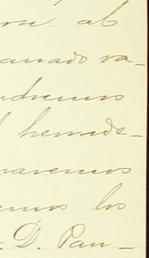 al
anado va-
ndremos
herrade-
haremos
emos los
D. Pau-